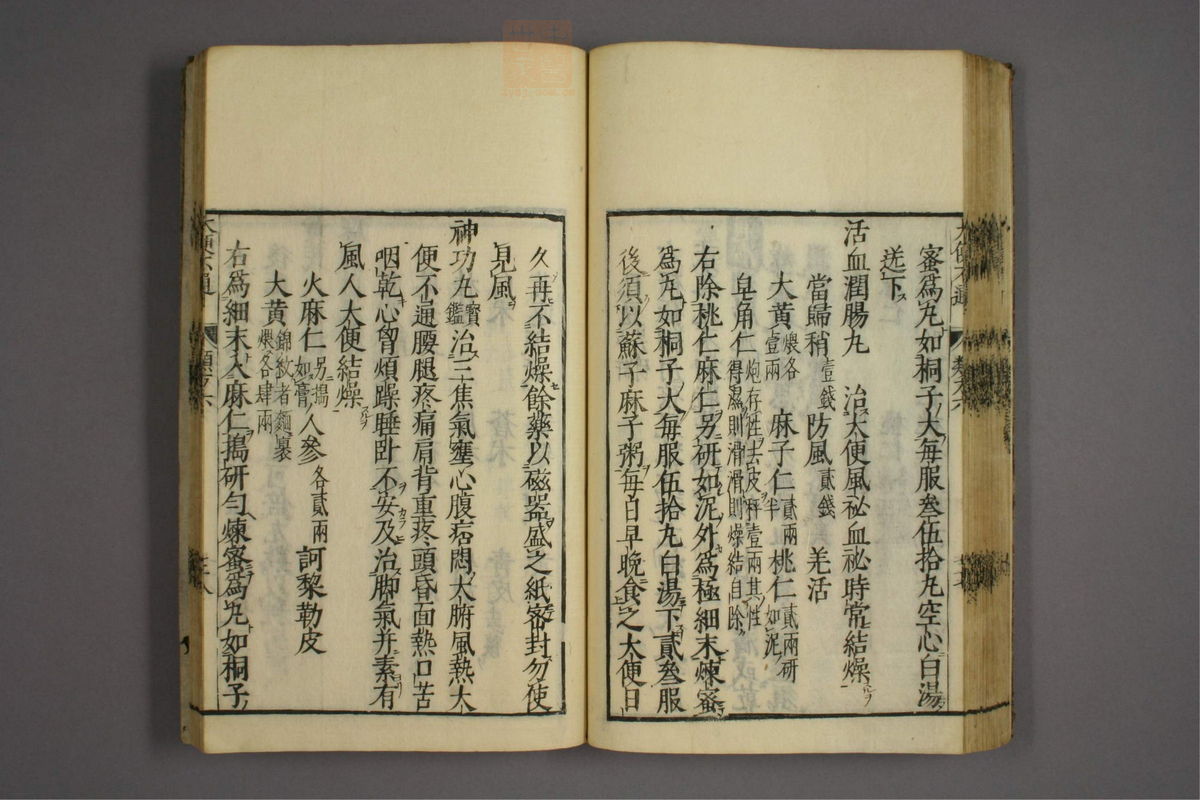 蜜爲丸如桐子大每服叁伍拾丸空心白湯
送下
活血潤腸丸　治大便風祕血祕時常結燥
當歸稍壹錢　防風貳錢　羌活
大黃煨各壹兩　麻子仁貳兩半　桃仁貳兩研如泥
皂角仁炮存性去皮秤壹兩其性得濕則滑滑則燥結自除
右除桃仁麻仁另研如泥外爲極細末煉蜜
爲丸如桐子大每服伍拾丸白湯下貳叁服
後須以蘇子麻子粥每日早晚食之大便日
久再不結燥餘藥以磁器盛之紙密封勿使
見風
神功丸寶鑑治三焦氣壅心腹痞悶大腑風熱大
便不通腰腿疼痛肩背重疼頭昏面熱口苦
咽乾心胷煩躁睡卧不安及治脚氣并素有
風人大便結燥
火麻仁另搗如膏　人參各貳兩　訶黎勒皮
大黃錦紋者麵裹煨各肆兩
右爲細末入麻仁搗研勻煉蜜爲丸如桐子